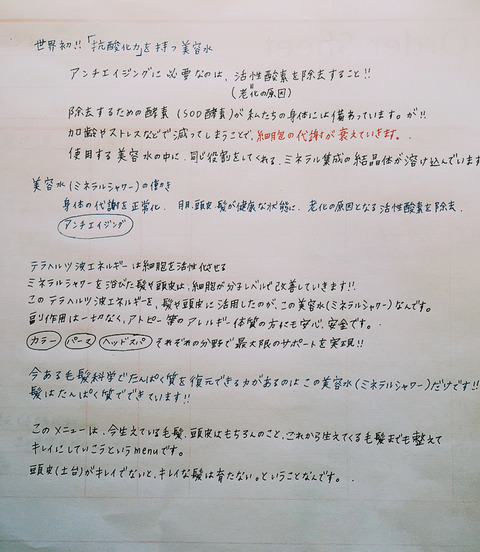 世界初!!「抗酸化力」を持つ美容水
アンチエイジングに必要なのは、活性酸素を除去すること!!
(老化の原因)
除去するための酵素(SOD酵素)が私たちの身体には備あっています。が!!
加齢やストレスなどで減ってしまうことで、細胞の代謝が衰えていきます。
使用する美容水の中に、同じ役割をしてくれる、ミネラル集成の結晶体が溶け込んでいます
美容水(ミネラルシャワー)の働き
身体の代謝を正常化、肌、頭皮、髪が健康な状態に、老化の原因となる活性酸素を除去、
アンチエイジング
テラヘルツ波エネルギーは細胞を活性化させる
ミネラルシャワーを浴びた髪や頭皮は、細胞が分子レベルで改善していきます!!
このテラヘルツ波エネルギーを、髪や頭皮に活用したのが、この美容水(ミネラルシャワー)なんです。
副作用は一切なく、アトピー等のアレルギー体質の方にも安心、安全です。
カラー パーマ ヘッドスパ それぞれの分野で最大限のサポートを実現!!
今ある毛髪科学でたんぱく質を復元できる力があるのはこの美容水(ミネラルシャワー)だけです!!
髪はたんぱく質でできています!!
このメニューは、今生えている毛髪、頭皮はもちろんのこと、これから生えてくる毛髪までも整えて
キレイにしていこうというmenuです。
頭皮(土台)がキレイでないと、キレイな髪は育たない。ということなんです。